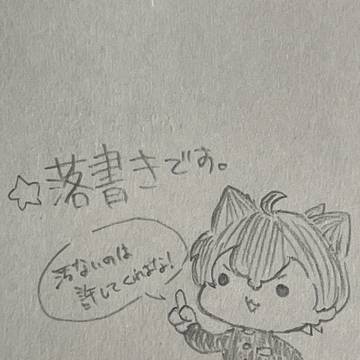 ☆落書きです。
汚ないのは
許してくれよな!